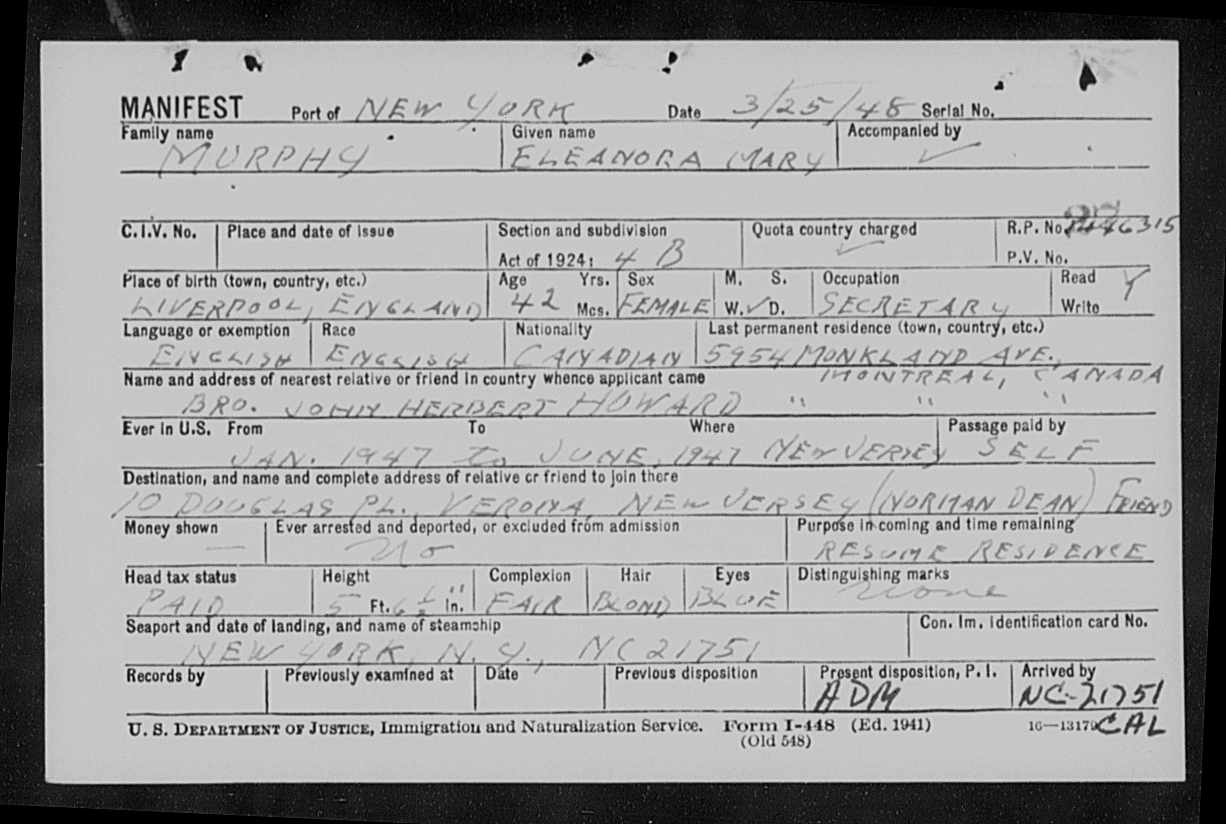 MANIFEST Port of NEW YORK Date 3/25/48 Serial No.
Family name Given name Accompanied by
MURPHY ELEANORA MARY ✓
C.I.V. No. Place and date of issue Section and subdivision Quota country charged R.P. No.
Act of 1924: 4 B ✓ P.V. No.
Place of birth (town, country, etc.) Age Yrs. Sex M. S. Occupation Read Y
LIVERPOOL, ENGLAND 42 Mos. FEMALE W. ✓ D. SECRETARY Write
Language or exemption Race Nationality Last permanent residence (town, country, etc.)
ENGLISH ENGLISH CANADIAN 5954 MONKLAND AVE.,
Name and address of nearest relative or friend in country whence applicant came MONTREAL, CANADA
BRO. JOHN HERBERT HOWARD " " "
Ever in U.S. From To Where Passage paid by
JAN. 1947 to JUNE, 1947 NEW JERSEY SELF
Destination, and name and complete address of relative or friend to join there
10 DOUGLAS PL., VERONA, NEW JERSEY (NORMAN DEAN) FRIEND
Money shown Ever arrested and deported, or excluded from admission Purpose in coming and time remaining
— No RESUME RESIDENCE
Head tax status Height Complexion Hair Eyes Distinguishing marks
PAID 5 Ft. 6 ½ " In. FAIR BLOND BLUE None
Seaport and date of landing, and name of steamship Con. Im. Identification card No.
NEW YORK, N. Y., NC 21751
Records by Previously examined at Date Previous disposition Present disposition, P. I. Arrived by
ADM NC-21751
U. S. DEPARTMENT OF JUSTICE, Immigration and Naturalization Service. Form I-448 (Ed. 1941) 16—13179 CAL
(Old 548)